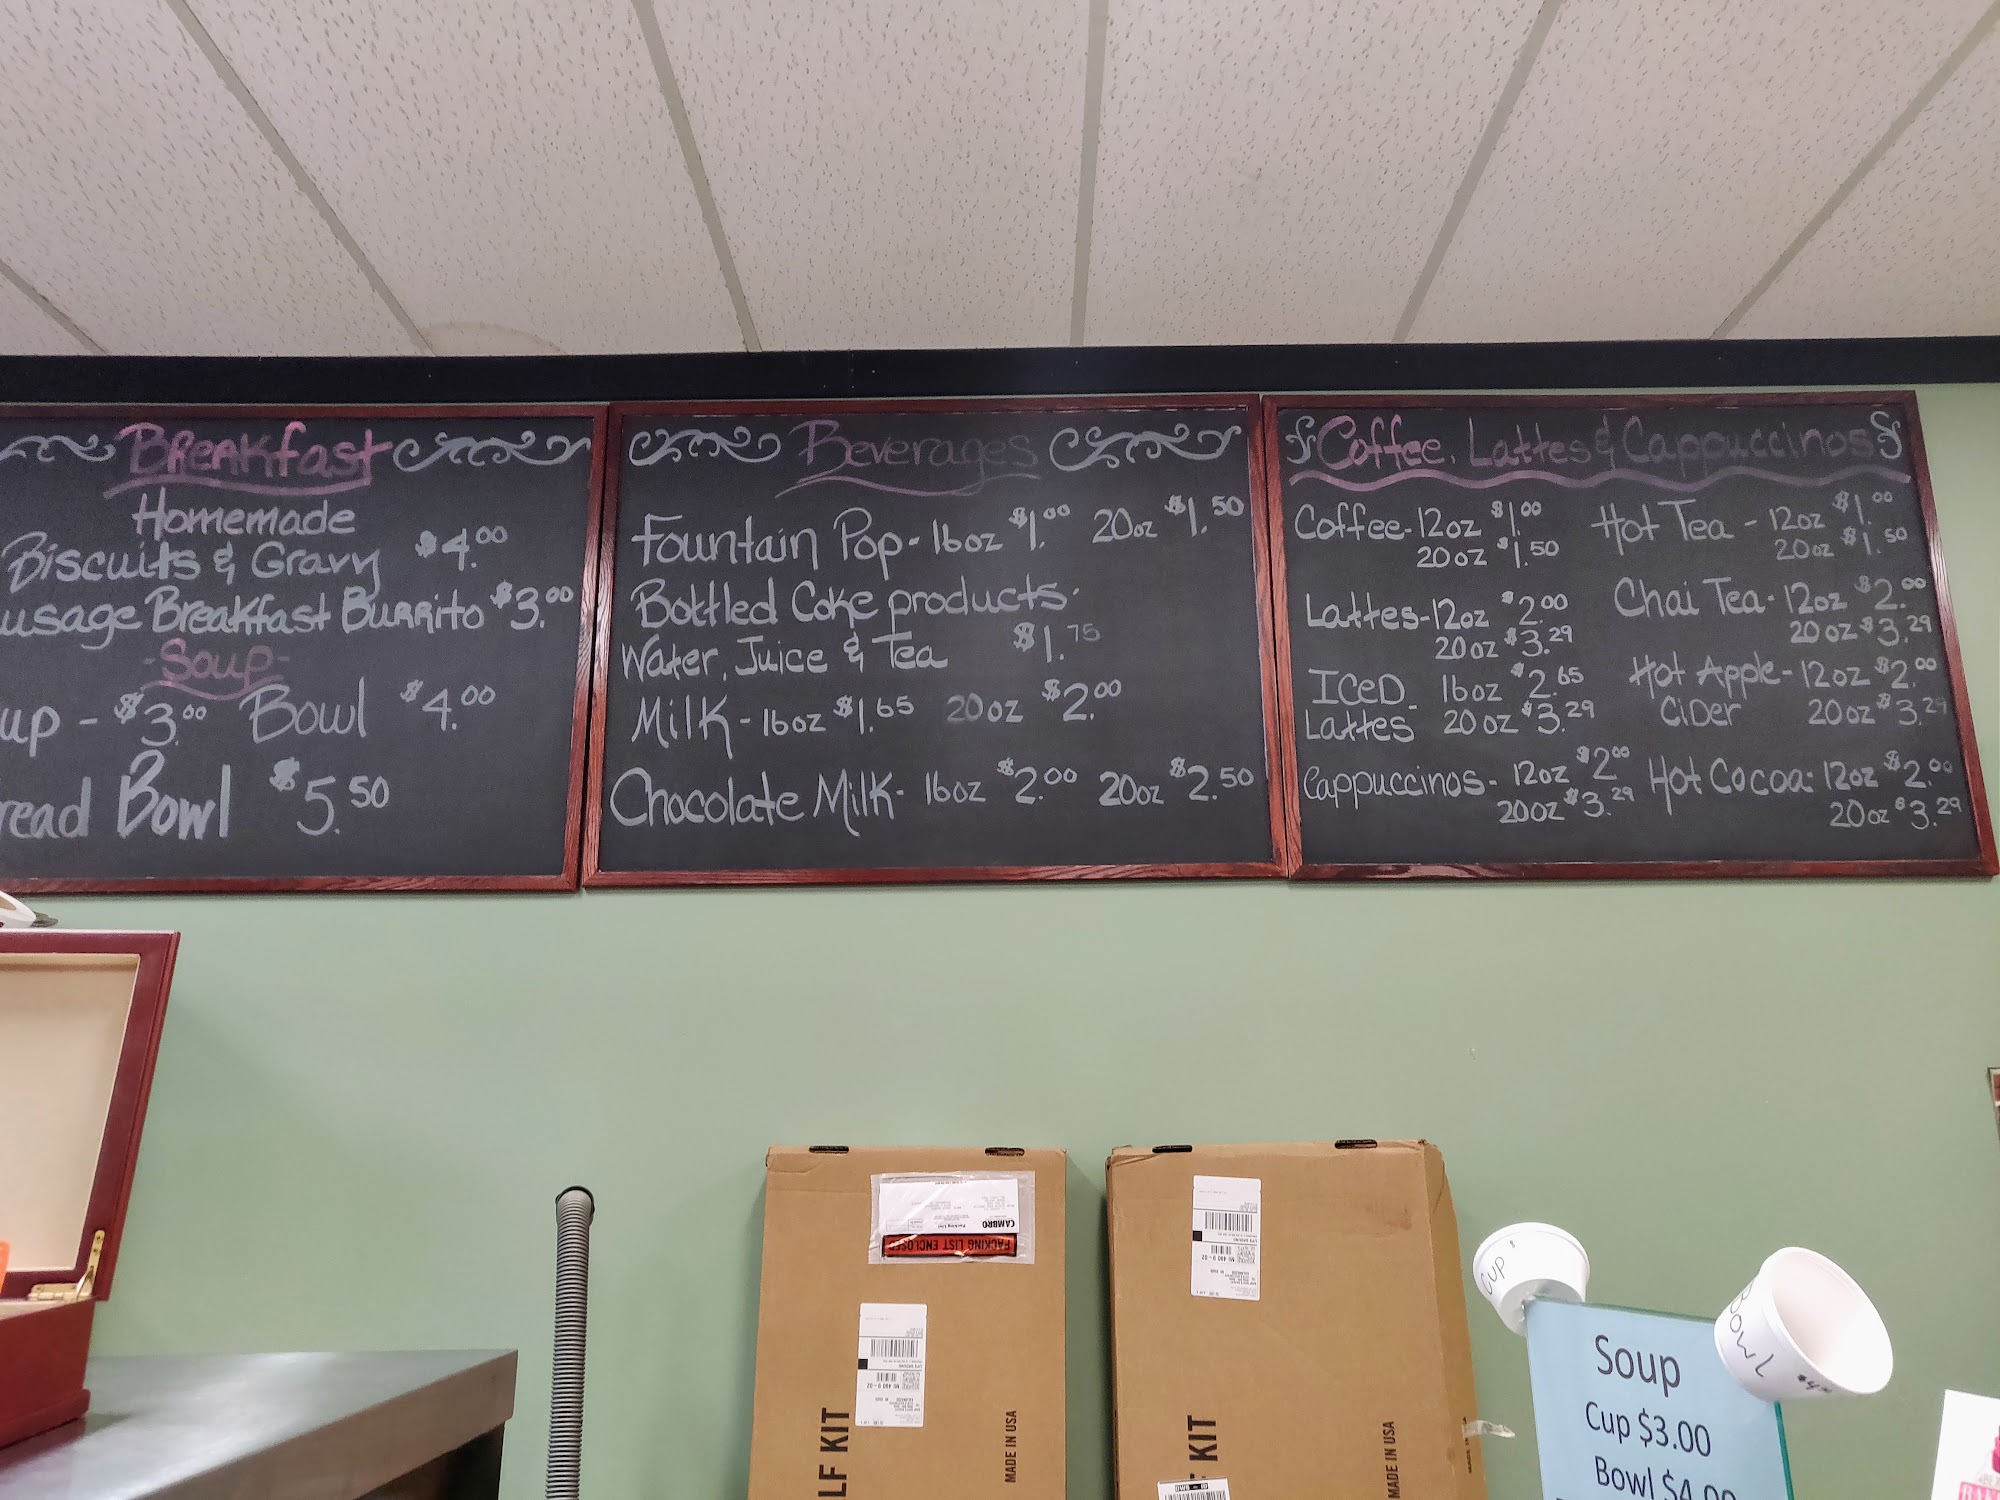 Breakfast
Homemade
Biscuits & Gravy $4.00
usage Breakfast Burrito $3.00
-Soup-
up - $3.00 Bowl $4.00
read Bowl $5.50
Beverages
Fountain Pop - 16oz $1.00 20oz $1.50
Bottled Coke products.
Water, Juice & Tea $1.75
Milk - 16oz $1.65 20oz $2.00
Chocolate Milk - 16oz $2.00 20oz $2.50
Coffee, Lattes & Cappuccinos
Coffee - 12oz $1.00
20oz $1.50
Lattes - 12oz $2.00
20oz $3.29
ICED 16oz $2.65
Lattes - 20oz $3.29
Cappuccinos - 12oz $2.00
20oz $3.29
Hot Tea - 12oz $1.00
20oz $1.50
Chai Tea - 12oz $2.00
20oz $3.29
Hot Apple - 12oz $2.00
CiDer 20oz $3.29
Hot Cocoa: 12oz $2.00
20oz $3.29
CAMBRO
Packing List
PACKING LIST ENCLOSED
UPS GROUND
MI 490 9-02
LF KIT
MADE IN USA
UPS GROUND
MI 490 9-02
KIT
MADE IN USA
Cup
Bowl
Soup
Cup $3.00
Bowl $4.00